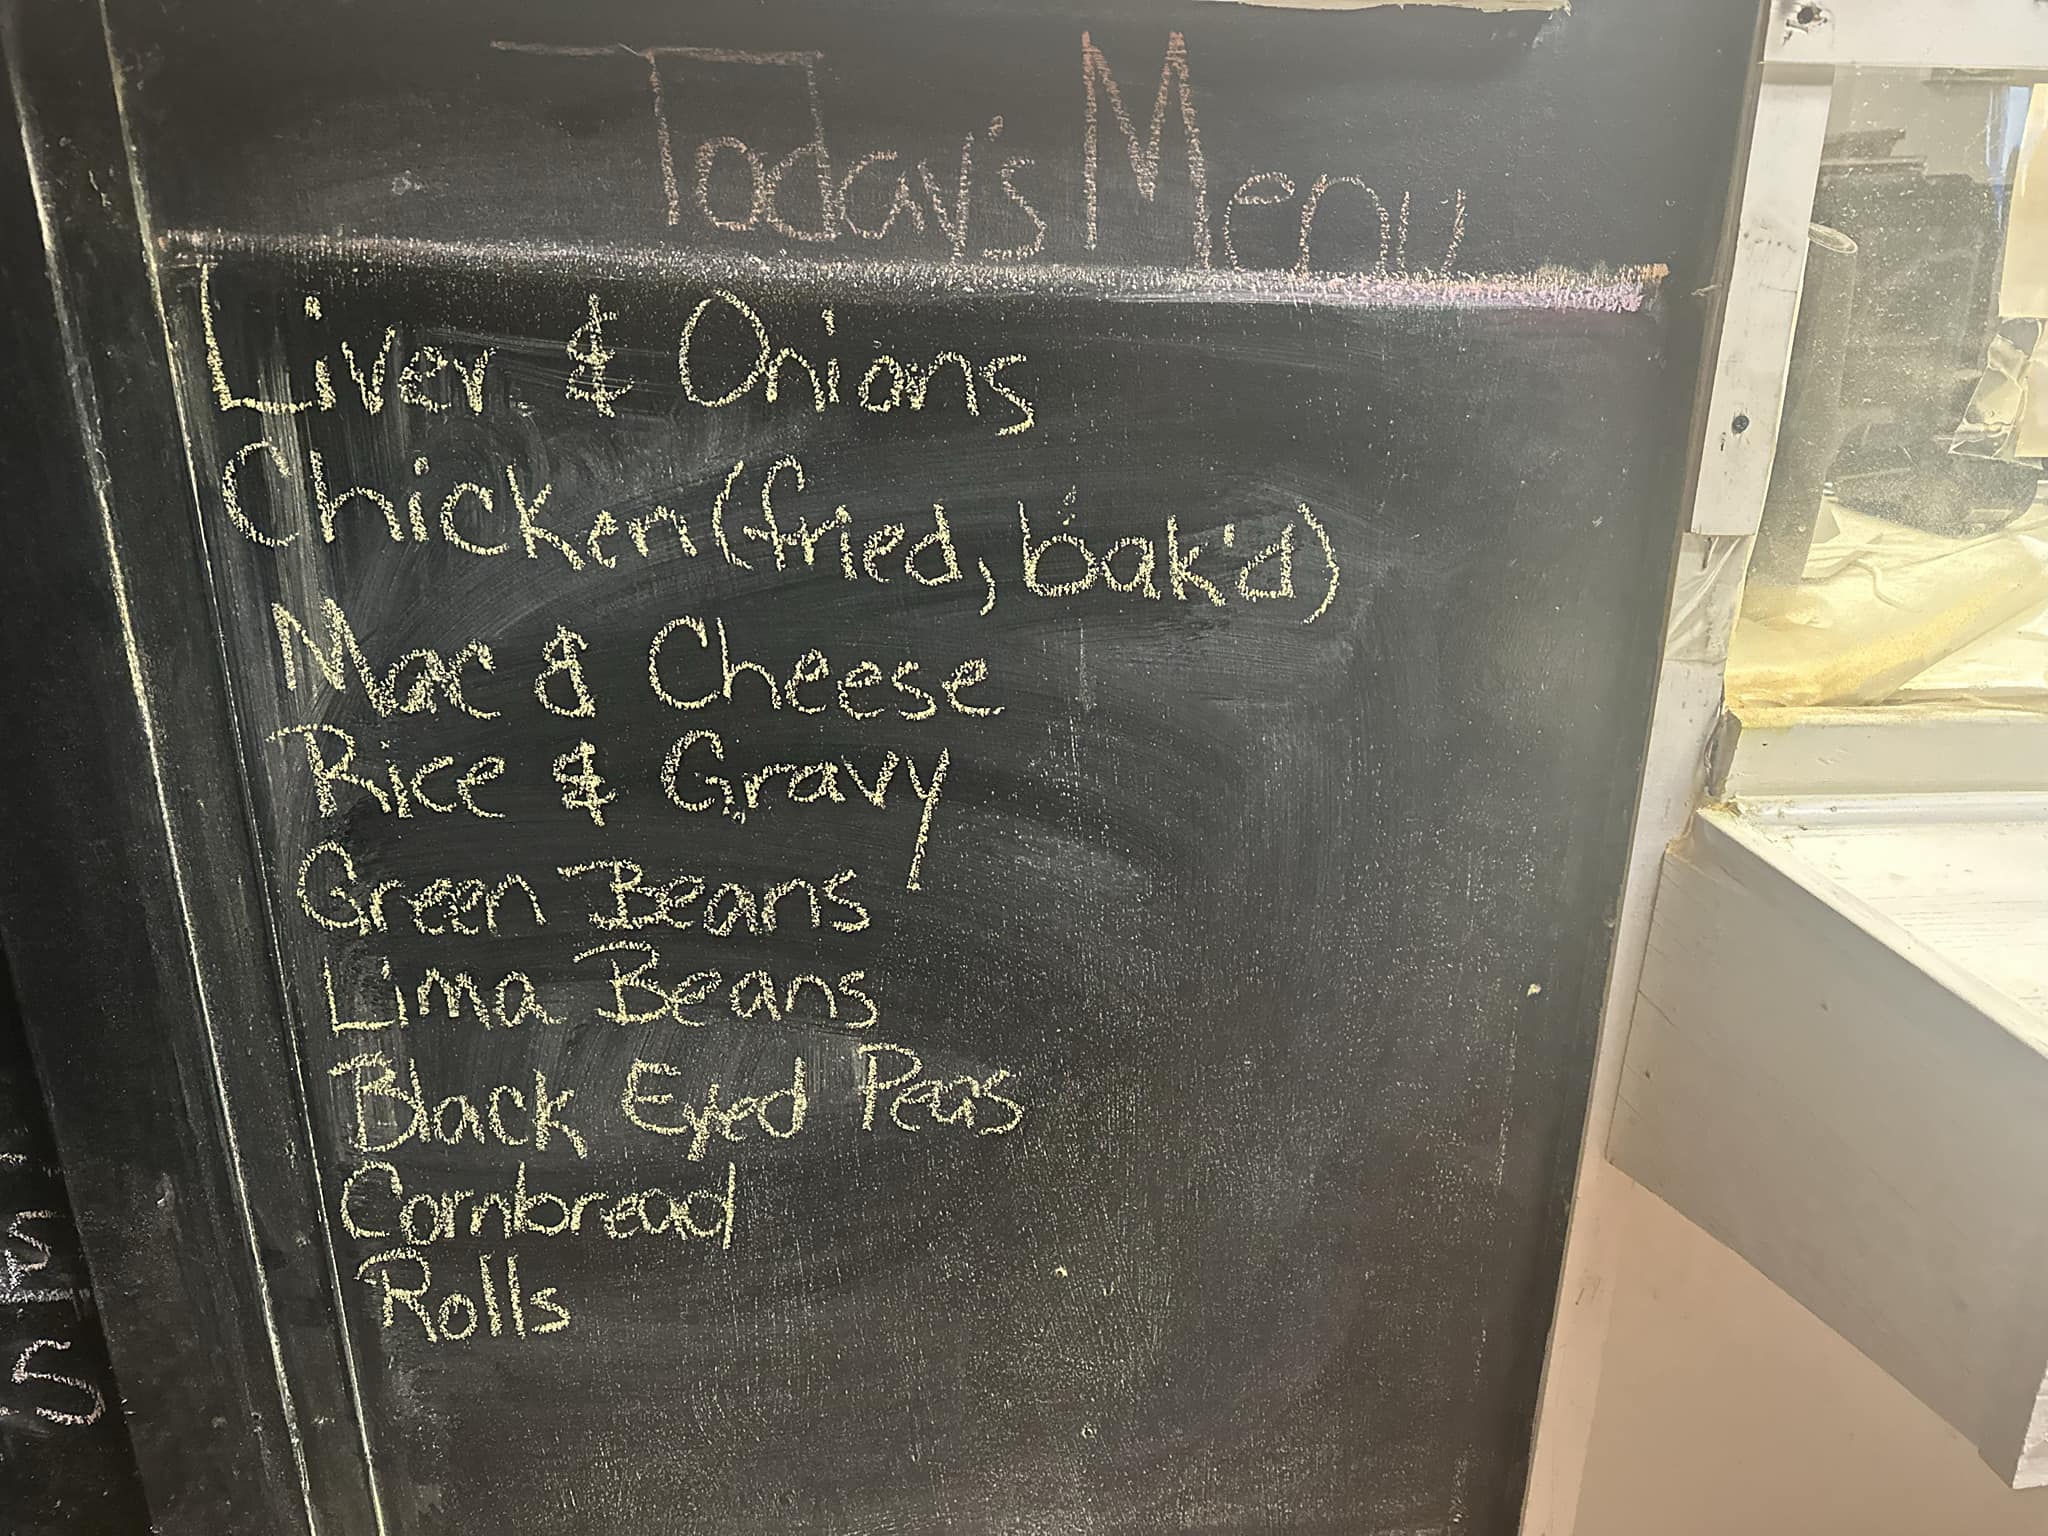 Today's Menu
Liver & Onions
Chicken (fried, bak'd)
Mac & Cheese
Rice & Gravy
Green Beans
Lima Beans
Black Eyed Peas
Cornbread
Rolls
S